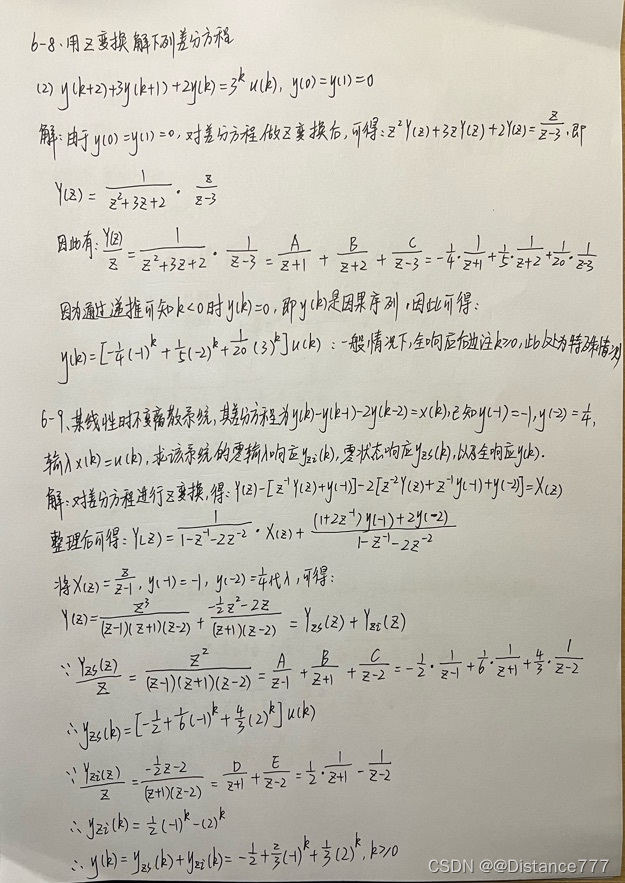 6-8、用Z变换解下列差分方程
(2) y(k+2)+3y(k+1)+2y(k)=3^k u(k), y(0)=y(1)=0
解:由于y(0)=y(1)=0,对差分方程做Z变换后,可得:z²Y(z)+3zY(z)+2Y(z)=z/(z-3),即
Y(z)=1/(z²+3z+2)·z/(z-3)
因此有:Y(z)/z=1/(z²+3z+2)·1/(z-3)=A/(z+1)+B/(z+2)+C/(z-3)=-1/4·1/(z+1)+1/5·1/(z+2)+1/20·1/(z-3)
因为通过递推可知k<0时y(k)=0,即y(k)是因果序列,因此可得:
y(k)=[-1/4(-1)^k+1/5(-2)^k+1/20(3)^k]u(k):一般情况下,全响应右边注k≥0,此处为特殊情况
6-9、某线性时不变离散系统,其差分方程为y(k)-y(k-1)-2y(k-2)=x(k),已知y(-1)=-1,y(-2)=1/4,
输入x(k)=u(k),求该系统的零输入响应yzi(k),零状态响应yzs(k),以及全响应y(k).
解:对差分方程进行Z变换,得:Y(z)-[z⁻¹Y(z)+y(-1)]-2[z⁻²Y(z)+z⁻¹y(-1)+y(-2)]=X(z)
整理后可得:Y(z)=1/(1-z⁻¹-2z⁻²)·X(z)+((1+2z⁻¹)y(-1)+2y(-2))/(1-z⁻¹-2z⁻²)
将X(z)=z/(z-1),y(-1)=-1,y(-2)=1/4代入,可得:
Y(z)=z³/((z-1)(z+1)(z-2))+(-1/2z²-2z)/((z+1)(z-2))=Yzs(z)+Yzi(z)
∵Yzs(z)/z=z²/((z-1)(z+1)(z-2))=A/(z-1)+B/(z+1)+C/(z-2)=-1/2·1/(z-1)+1/6·1/(z+1)+4/3·1/(z-2)
∴yzs(k)=[-1/2+1/6(-1)^k+4/3(2)^k]u(k)
∵Yzi(z)/z=(-1/2z-2)/((z+1)(z-2))=D/(z+1)+E/(z-2)=1/2·1/(z+1)-1/(z-2)
∴yzi(k)=1/2(-1)^k-(2)^k
∴y(k)=yzs(k)+yzi(k)=-1/2+2/3(-1)^k+1/3(2)^k,k≥0
CSDN @@Distance777